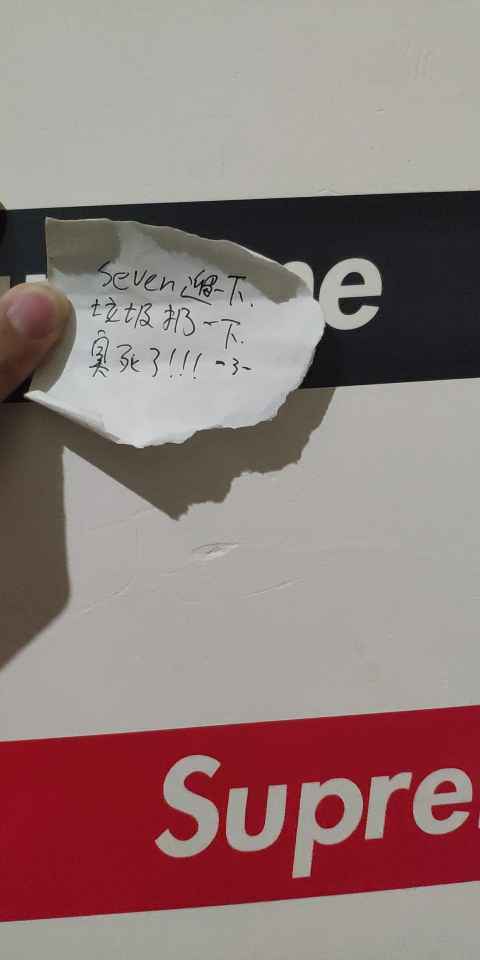 me
seven 遛一下.
垃圾扔一下.
臭死了!!! -3-
Supre